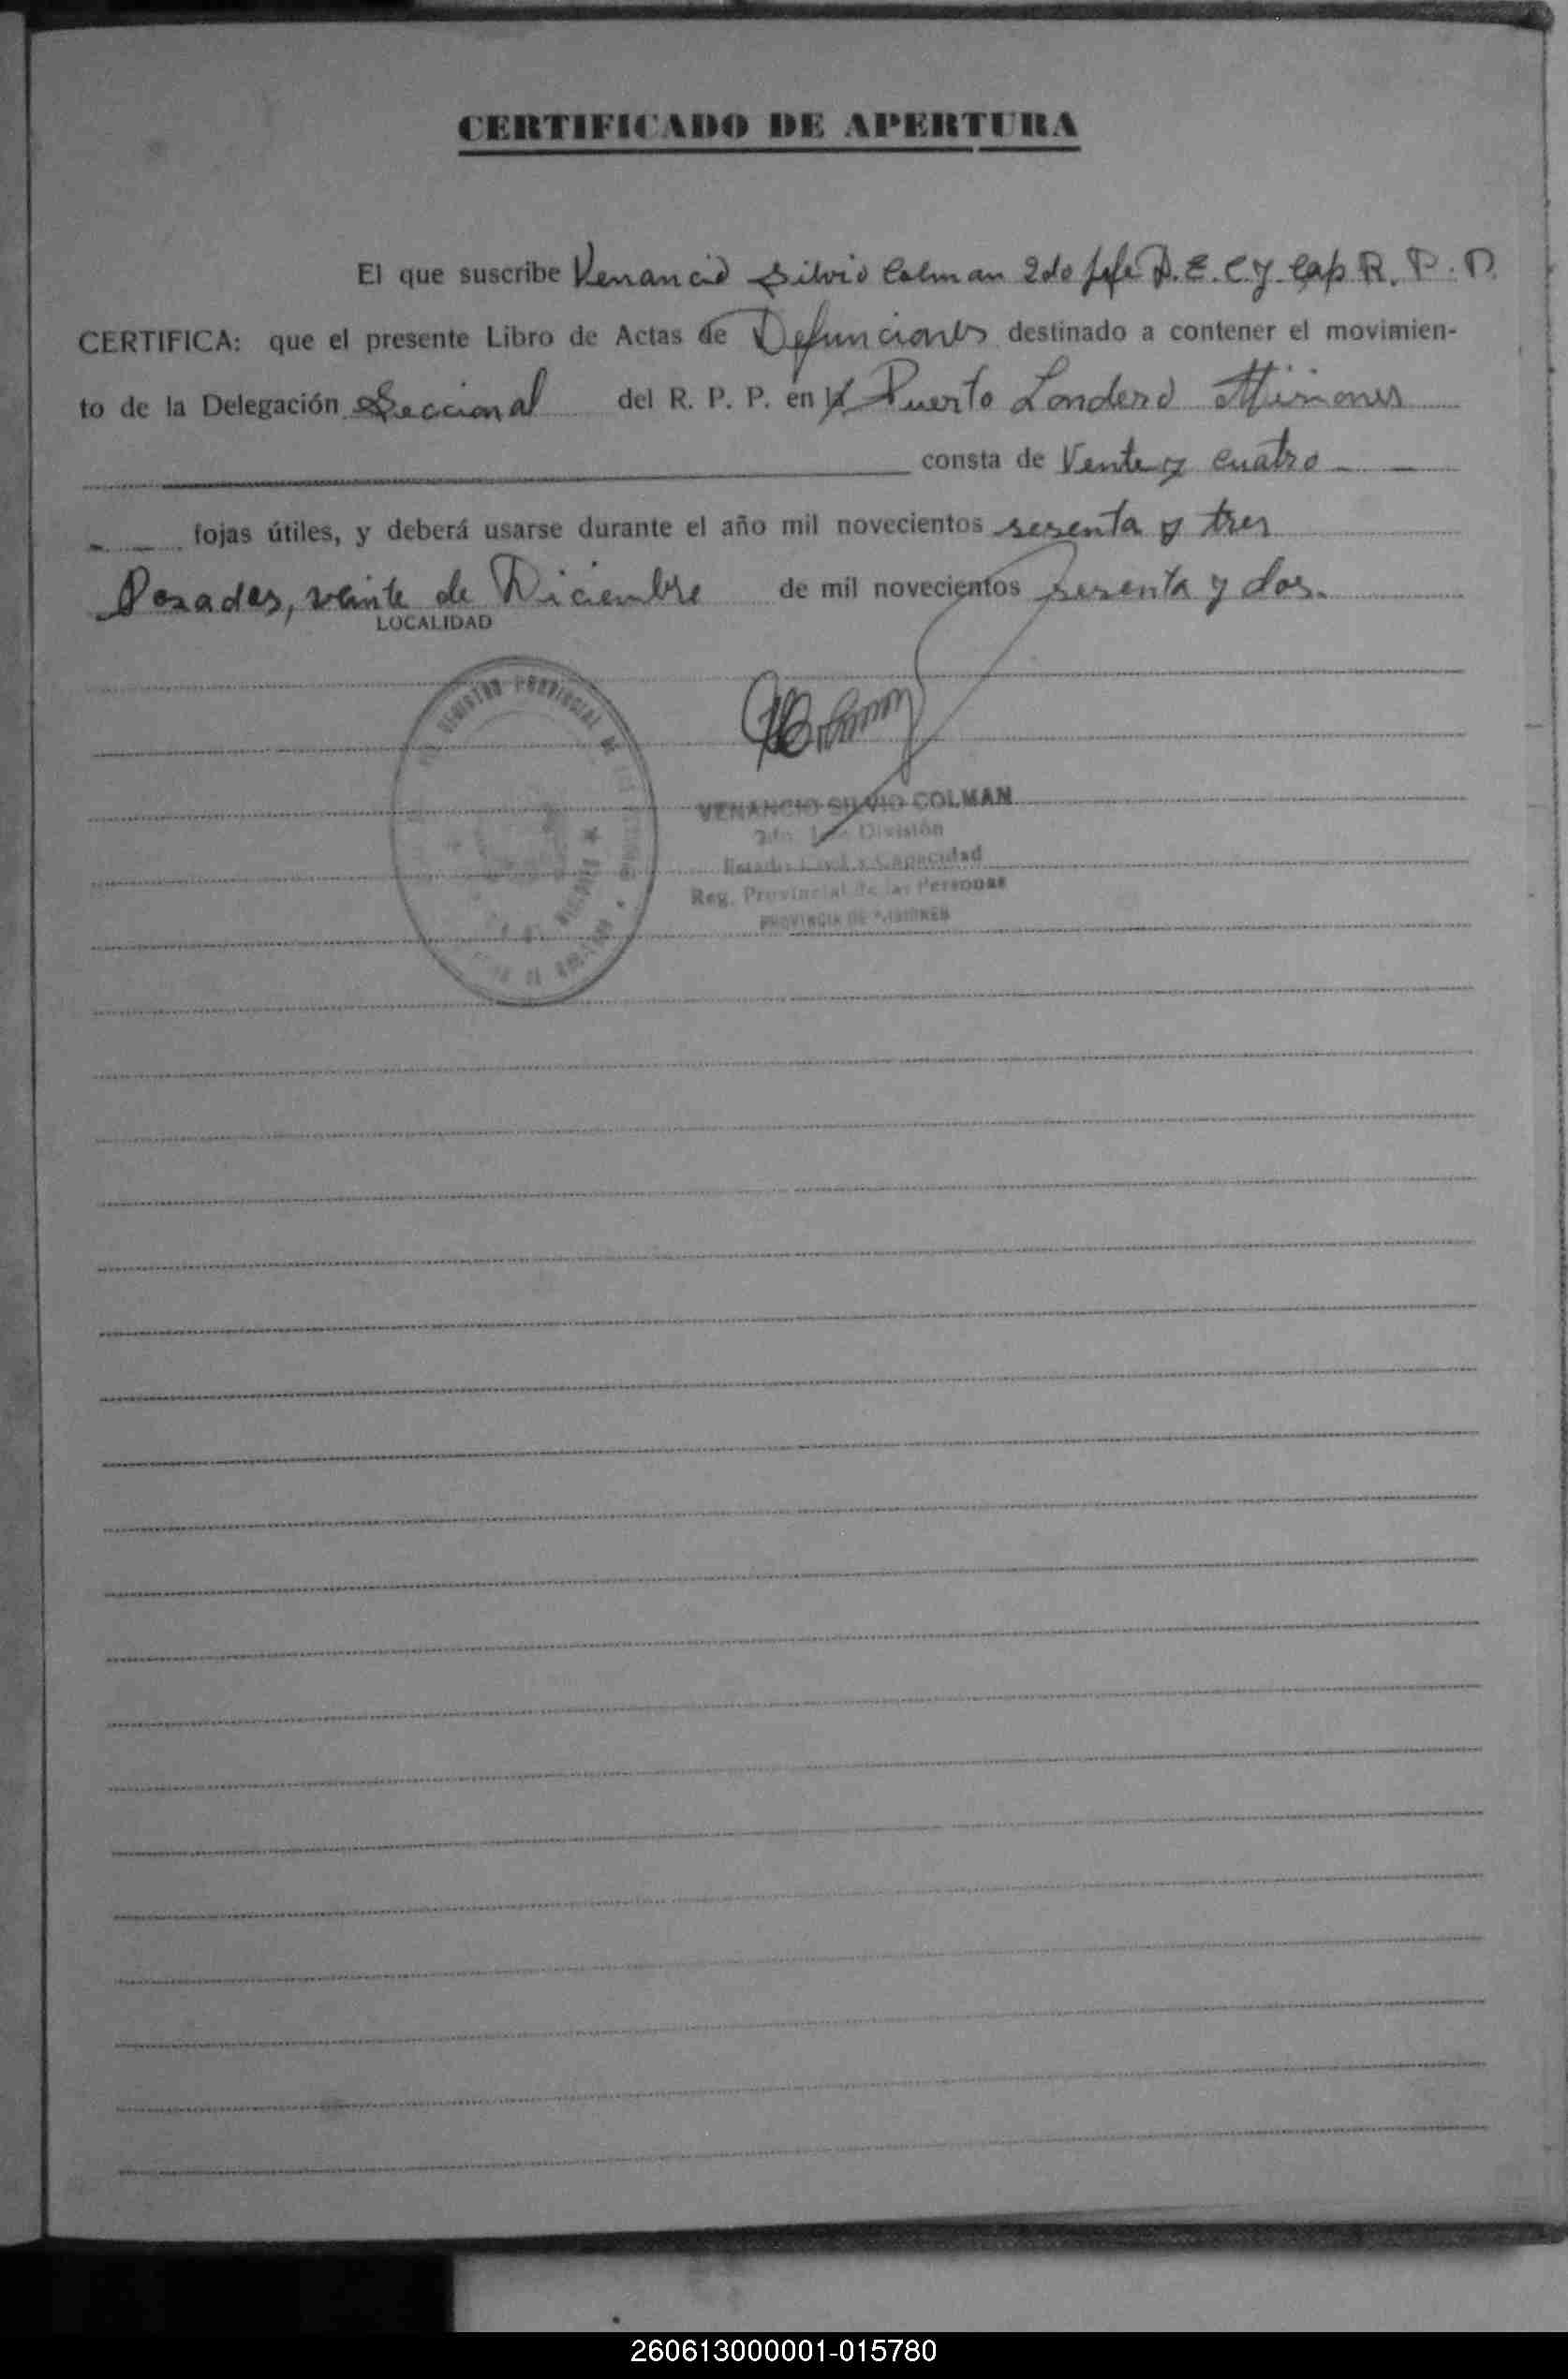 CERTIFICADO DE APERTURA
El que suscribe Venancio Silvio Colman 2do Jefe D. E. C. y Cap R. P. P.
CERTIFICA: que el presente Libro de Actas de Defunciones destinado a contener el movimien-
to de la Delegación Seccional del R. P. P. en Puerto Londero Misiones
consta de Vente y cuatro
fojas útiles, y deberá usarse durante el año mil novecientos sesenta y tres
Posadas, veinte de Diciembre de mil novecientos sesenta y dos.
LOCALIDAD
REGISTRO PROVINCIAL DE
VENANCIO SILVIO COLMAN
2do. Jefe División
Estado Civil y Capacidad
Reg. Provincial de las Personas
PROVINCIA DE MISIONES
260613000001-015780